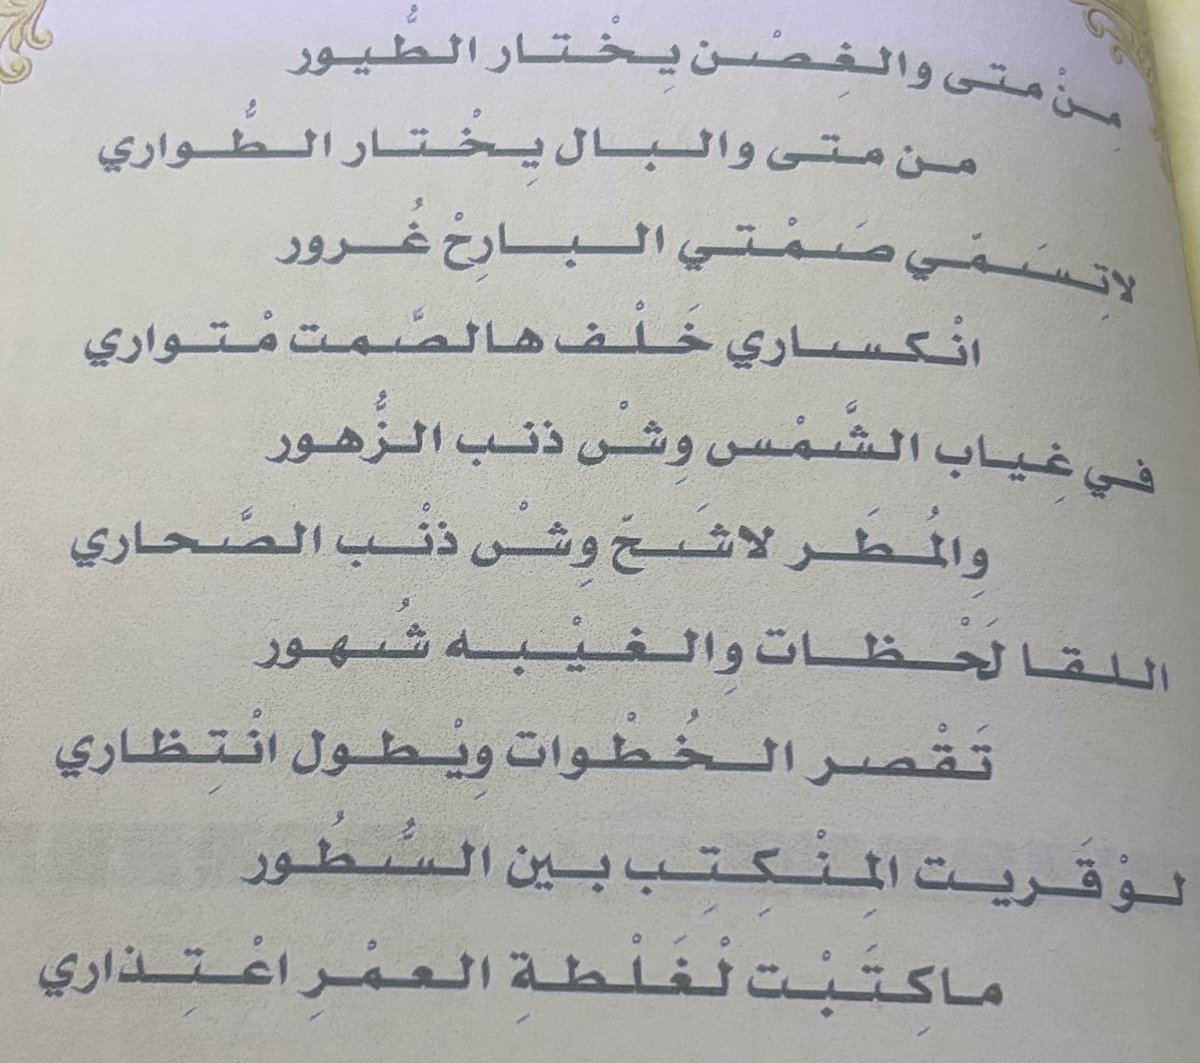 مِنْ متى والغِصْن يِخْتار الطُّيور
من متى والبال يِخْتار الطُّواري
لاتِسَمّي صَمْتي البارِحْ غُرور
انْكساري خَلْف هالصَّمت مْتواري
في غِياب الشَّمْس وِشْ ذنب الزُّهور
وِالمُطَر لاشَحّ وِشْ ذنْب الصَّحاري
اللقا لَحْظات وِالغيْبه شُهور
تَقْصر الخُطْوات وِيْطول انْتِظاري
لوْ قَريت المِنْكِتِب بين السُّطُور
ماكِتَبْت لْغَلْطةِ العمْرِ اعْتِذاري